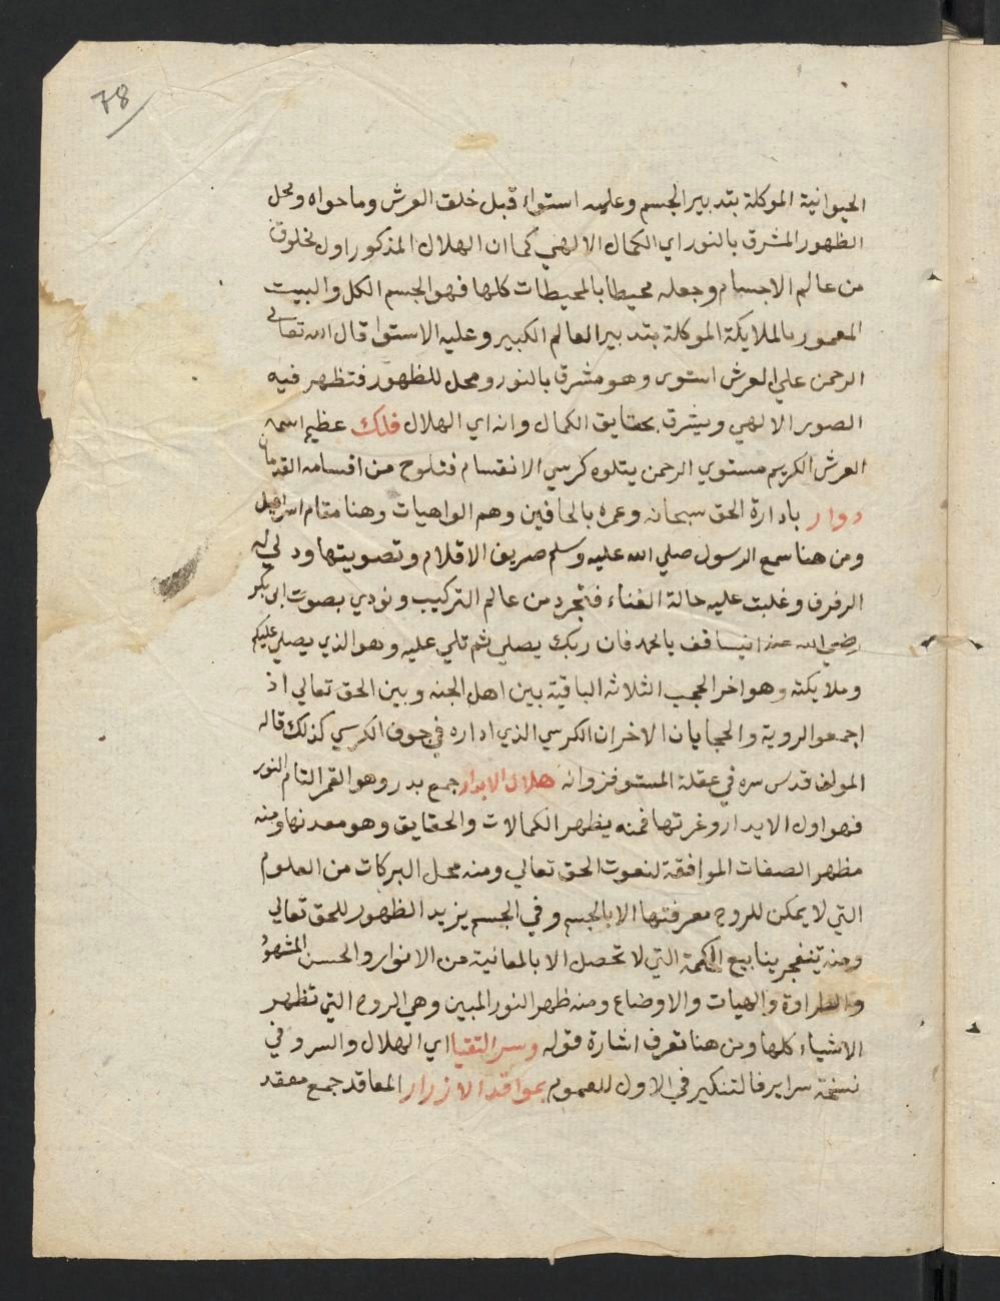 78
الحيوانية الموكلة بتدبير الجسم وعليه استواء قبل خلق العرش وما حواه ومحل
الظهور المشرق بالنور اي الكمال الالهي كما ان الهلال المذكور اول مخلوق
من عالم الاجسام وجعله محيطا بالمحيطات كلها فهو الجسم الكل والبيت
المعمور بالملايكة الموكلة بتدبير العالم الكبير وعليه الاستوا قال الله تعالى
الرحمن علي العرش استوى وهو مشرق بالنور ومحل للظهور فتظهر فيه
الصور الالهي ويشرق بحقايق الكمال وانه اي الهلال فلك عظيم اسمه
العرش الكريم مستوي الرحمن يتلوه كرسي الانقسام فتلوح من اقسامه القدمان
دوار بادارة الحق سبحانه وعمره بالحافين وهم الواهبات وهنا مقام اسرافيل
ومن هنا سمع الرسول صلي الله عليه وسلم صريف الاقلام وتصويتها ودلي له
الرفرف وغلبت عليه حالة الفناء فتجرد من عالم التركيب ونودي بصوت ابى بكر
رضي الله عنه انيسا قف يا محمد فان ربك يصلي ثم تلي عليه وهو الذي يصلي عليكم
وملايكته وهو اخر الحجب الثلاثة الباقية بين اهل الجنه وبين الحق تعالي اذ
اجمعو الروية والحجابان الاخران الكرسي الذي اداره في جوف الكرسي كذلك قاله
المولف قدس سره في عقلة المستوفز وانه هلال الابدار جمع بدر وهو القمر التام النور
فهو اول الابدار وغرتها فمنه يظهر الكمالات والحقايق وهو معدنها ومنه
مظهر الصفات الموافقة لنعوت الحق تعالي ومنه محل البركات من العلوم
التي لا يمكن للروح معرفتها الا بالجسم وفي الجسم يزيد الظهور للحق تعالي
ومنه تنفجر ينابيع الحكمة التي لا تحصل الا بالمعانية من الانوار والحسن المشهود
والطراوة والهيات والاوضاع ومنه ظهر النور المبين وهي الروح التي تظهر
الاشياء كلها ومن هنا تعرف اشارة قوله وسر التقيا اي الهلال والسر وفي
نسخة سراير فالتنكير في الاول للعموم بمواقد الازرار المعاقد جمع معقد